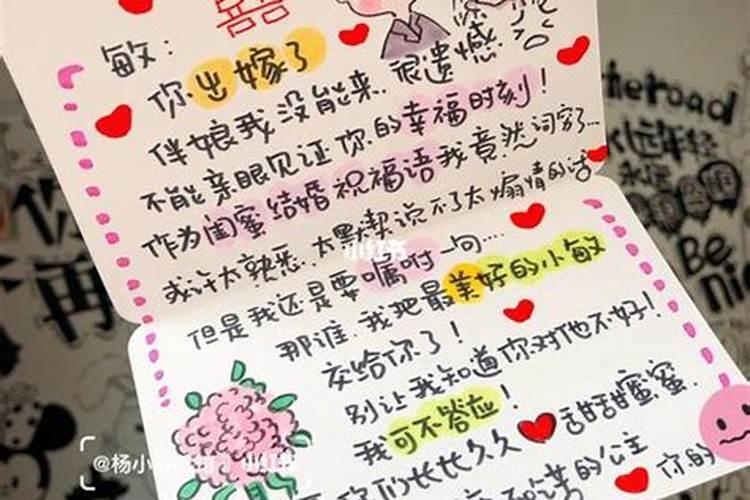 囍
敏：
你出嫁了
伴娘我没能来.很遗憾.
不能亲眼见证你的幸福时刻！
作为闺蜜结婚祝福语我竟然词穷了...
或许太熟悉.太默契说不了太煽情的话
小红书
但是我还是要嘱咐一句....
那谁.我把最美好的小敏
交给你了！
别让我知道你对他不好！
我可不答应！
甜甜蜜蜜.
你们长长久久
的公主
你的
theroad
永远年轻
永远
Be
你
不再
@杨小
小红书